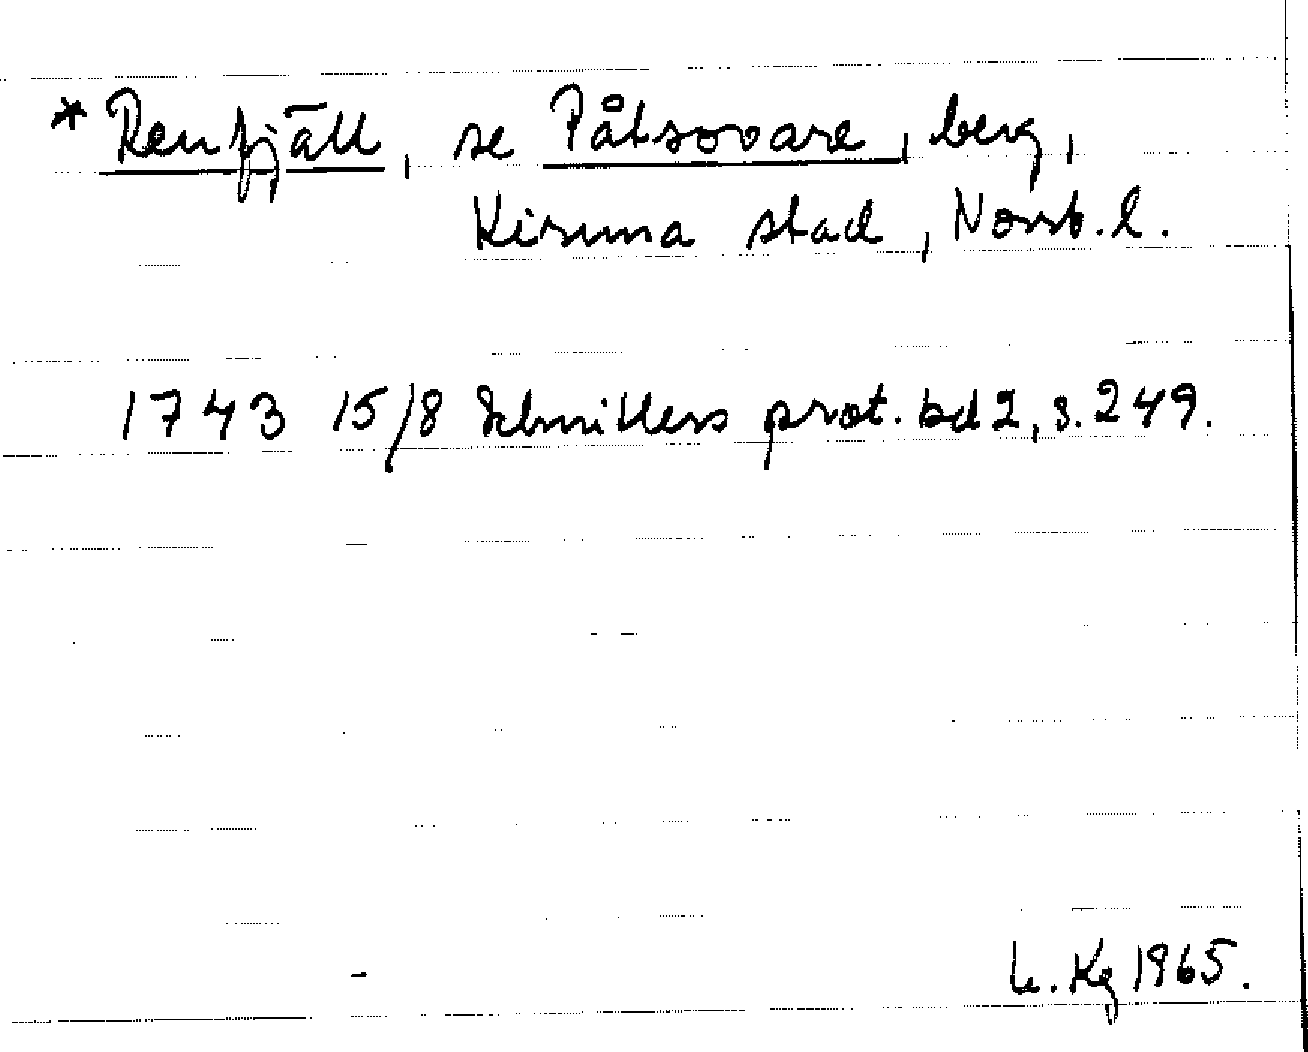 *Renfjäll, se Påtsovare, berg,
Kiruna stad, Norrb.l.
1743 15/8 Schnitlers prot. bd 2, s. 249.
Kg 1965.